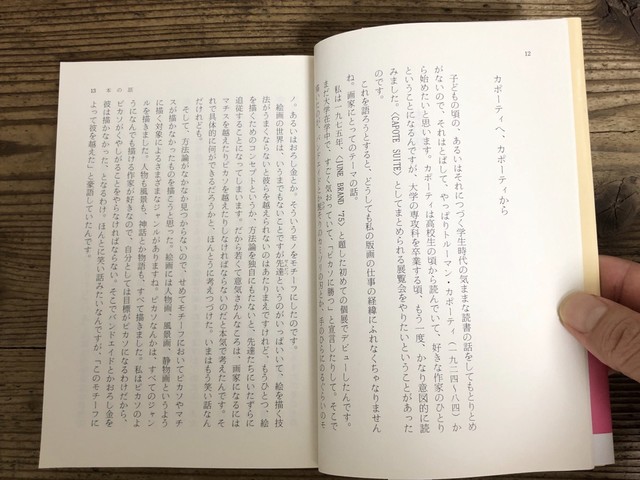 12
カポーティへ、カポーティから
子どもの頃の、あるいはそれにつづく学生時代の気ままな読書の話をしてもとりとめ
がないので、それはとばして、やっぱりトルーマン・カポーティ(一九二四〜八四)か
ら始めたいと思います。カポーティは高校生の頃から読んでいて、好きな作家のひとり
ということになるんですが、大学の専攻科を卒業する頃、もう一度、かなり意図的に読
みました。《CAPOTE SUITE》としてまとめられる展覧会をやりたいということがあった
のです。
これを語ろうとすると、どうしても私の版画の仕事の経緯にふれなくちゃなりません
ね。画家にとってのテーマの話。
私は一九七五年、《JUNE BRAND '75》と題した初めての個展でデビューしたんです。
まだ大学在学中で、すごく気おっていて、「ピカソに勝つ」と宣言したりして。そこで
ノ。あるいはおろし金とか、そういうモノをモチーフにしたのです。
絵画の世界は、いうまでもないことですが先達というのがいっぱいいて、絵を描く技
法がうまくならないと彼らを越えられないのはあたりまえですけれど、もうひとつ、絵
を描くためのコンセプトというか、方法論を独自にもたないと、先達たちにいたずらに
追従することになってしまいます。だから若くて意気さかんなころは、画家になるには
マチスを越えたりピカソを越えたりしなければならないのだと本気で考えたんです。そ
れで具体的に何ができるだろうかと、ほんとうに考えつづけた。いまはもう笑い話なん
だけれども。
そして、方法論がなかなか見つからないので、せめてモチーフにおいてピカソやマチ
スが描かなかったものを描こうと思った。絵画には人物画、風景画、静物画というよう
に描く対象によるさまざまなジャンルがありますね。ピカソなんかは、すべてのジャン
ルを描きました。人物も風景も、神話とか物語も、すべて描きました。私はピカソのよ
うになんでも描ける作家が好きなので、自分としては目標がピカソになるわけだから、
ピカソがくやしがることをやらなければならない。そこでバンドエイドとかおろし金を
彼は描かなかった、となるわけ。ほんとに笑い話みたいなんですが、「このモチーフに
よって彼を越えた」と豪語していたんです。
13 本の話